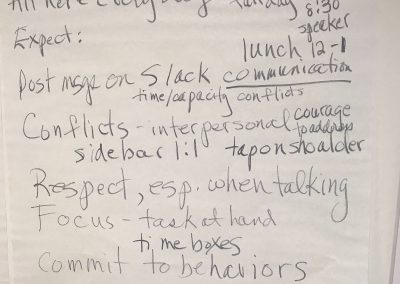 All here every day Tuesday 8:30
speaker
Expect:
lunch 12-1
Post msgs on Slack communication
time/capacity conflicts
Conflicts - interpersonal courage
to address
sidebar 1:1 tap on shoalder
Respect, esp. when talking
Focus - task at hand
time boxes
Commit to behaviors